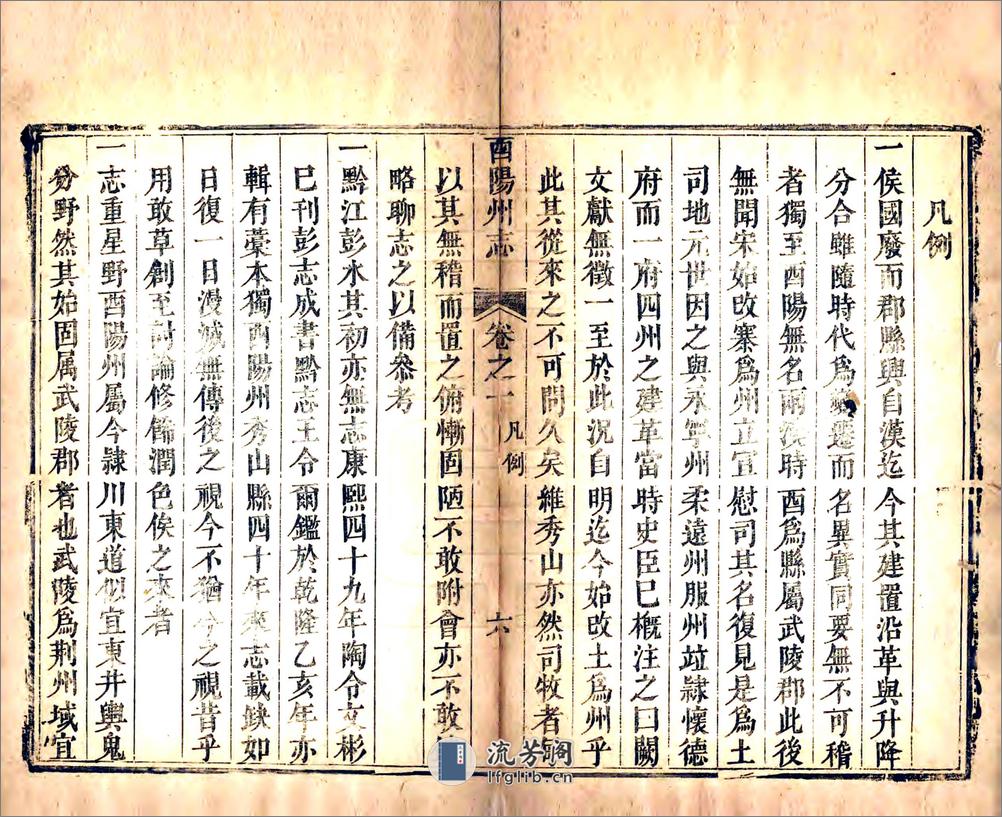 凡例
一侯國廢而郡縣興自漢迄今其建置沿革與升降
分合雖隨時代爲變遷而名異實同要無不可稽
者獨至酉陽無名兩漢時酉爲縣屬武陵郡此後
無聞宋始改寨爲州立宣慰司其名復見是爲土
司地元世因之與永寧州柔遠州服州竝隸懷德
府而一府四州之建革當時史臣已槪注之曰闕
文獻無徵一至於此況自明迄今始改土爲州乎
此其從來之不可問久矣維秀山亦然司牧者
酉陽州志 卷之一 凡例 六
以其無稽而置之俯慚固陋不敢附會亦不敢
略聊志之以備參考
一黔江彭水其初亦無志康熙四十九年陶令文彬
已刊彭志成書黔志王令爾鑑於乾隆乙亥年亦
輯有藁本獨酉陽州秀山縣四十年來志載缺如
日復一日漫滅無傳後之視今不猶今之視昔乎
用敢草創至討論修飾潤色俟之來者
一志重星野酉陽州屬今隸川東道似宜東井輿鬼
分野然其始固属武陵郡者也武陵爲荆州域宜
流芳阁
lfglib.cn